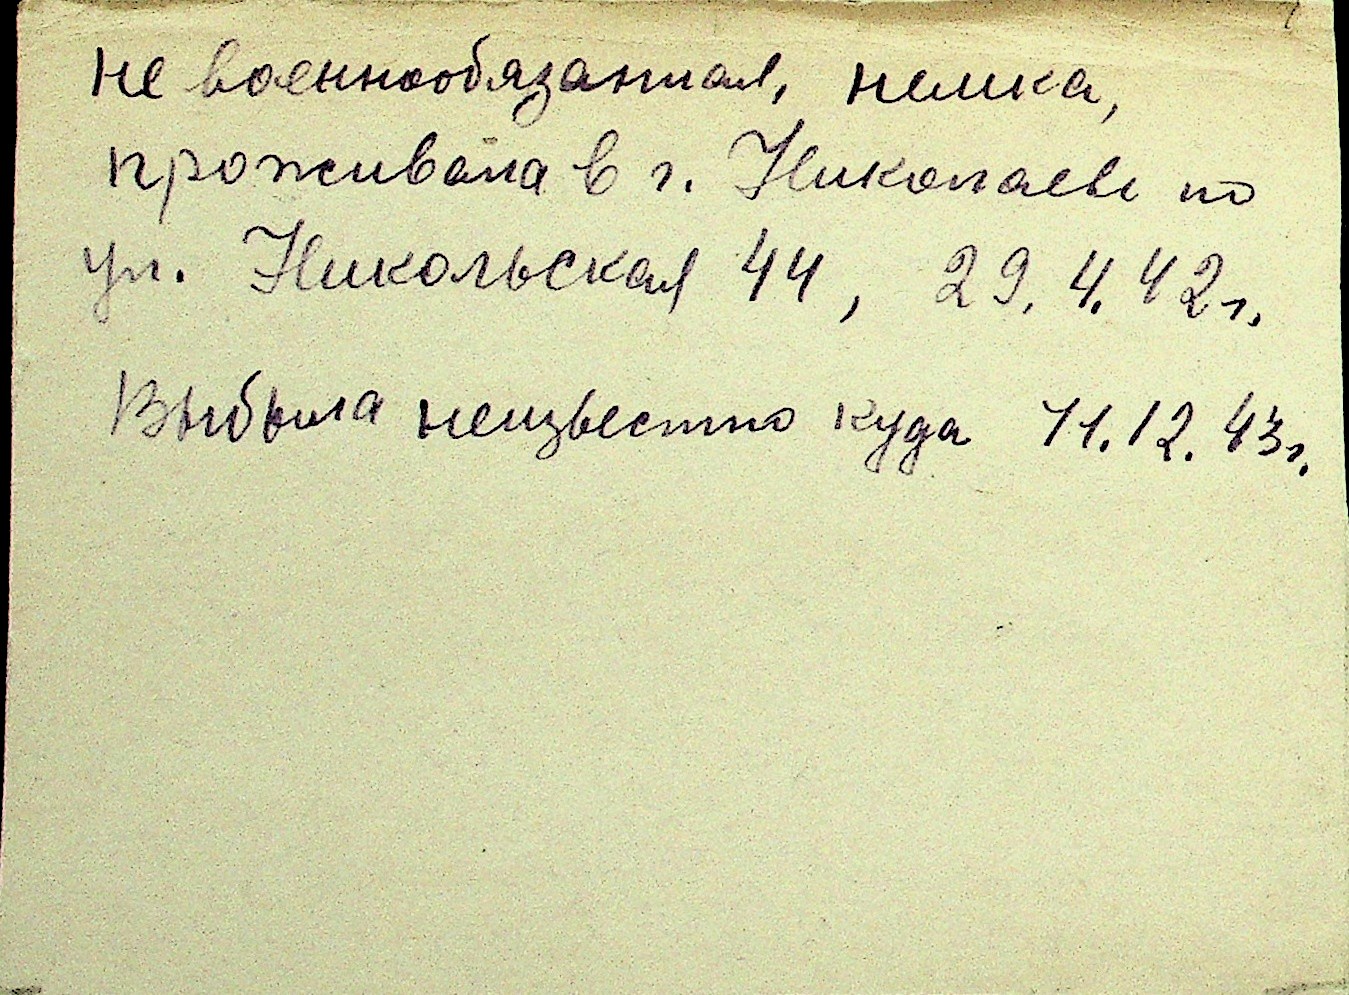 не военнообязанная, немка,
проживала в г. Николаеве по
ул. Никольская 44, 29.4.42г.
Выбыла неизвестно куда 11.12.43г.